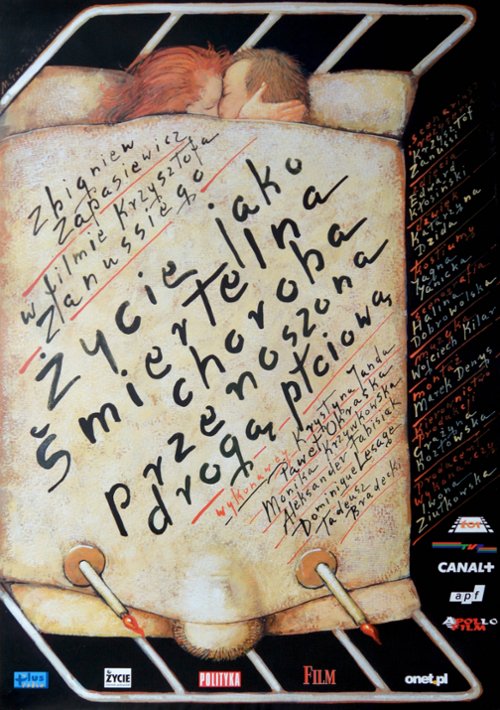 Zbigniew
Zapasiewicz
w filmie Krzysztofa
Zanussiego
Życie jako
śmiertelna
choroba
przenoszona
drogą płciową
wykonawcy Krystyna Janda
Paweł Okraska
Monika Krzywkowska
Aleksander Fabisiak
Dominique Lesage
Tadeusz
Bradecki
scenariusz
Krzysztof
Zanussi
zdjęcia
Edward
Kłosiński
Katarzyna
Dzida
kostiumy
Jagna
Janicka
Halina
Dobrowolska
muzyka
Wojciech Kilar
montaż
Marek Denys
Grażyna
Kozłowska
Iwona
Ziułkowska
tor
TV
CANAL+
apf
APOLLO
FILM
+plus
ŻYCIE
POLITYKA
FILM
onet.pl